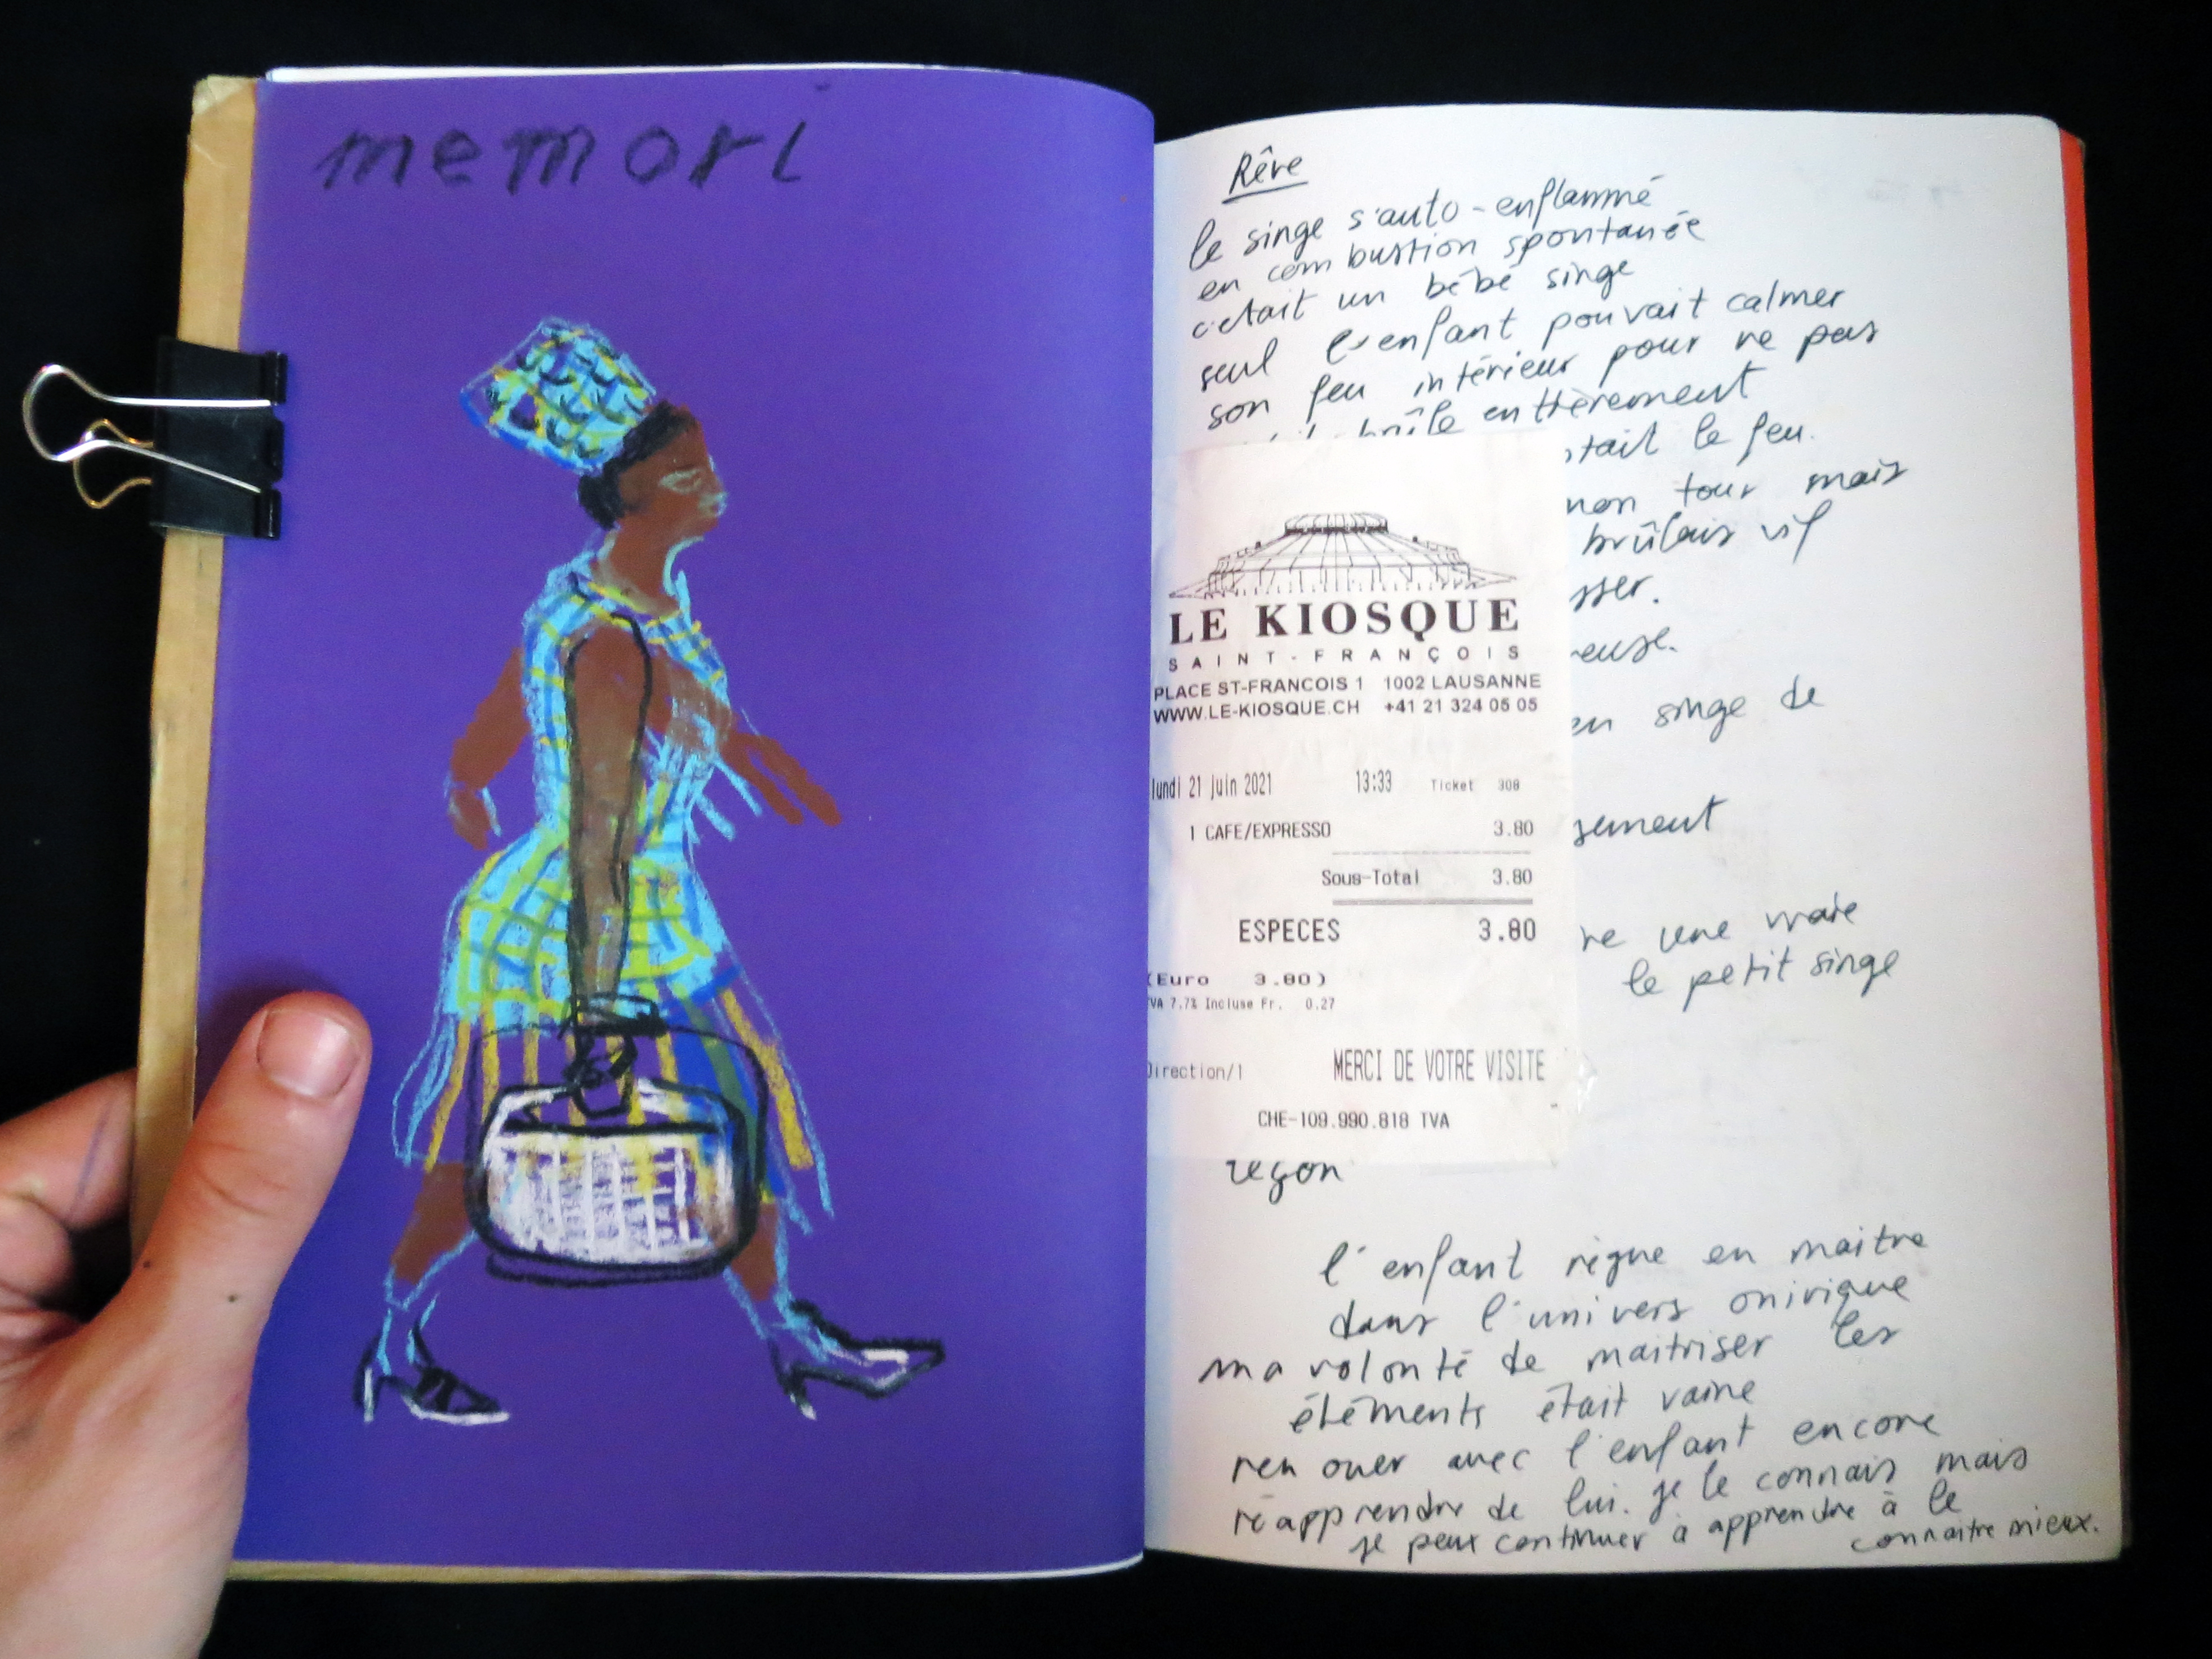 memori
Rêve
le singe s'auto-enflammé
en combustion spontanée
c'était un bébé singe
seul l'enfant pouvait calmer
son feu intérieur pour ne pas
brûle entièrement
tait le feu.
mon tour mais
brûlais vif
sser.
reuse.
en singe de
sement
re une vraie
le petit singe
LE KIOSQUE
SAINT-FRANÇOIS
PLACE ST-FRANCOIS 1 1002 LAUSANNE
WWW.LE-KIOSQUE.CH +41 21 324 05 05
lundi 21 juin 2021 13:33 Ticket 308
1 CAFE/EXPRESSO 3.80
Sous-Total 3.80
ESPECES 3.80
(Euro 3.80)
TVA 7.7% Incluse Fr. 0.27
Direction/1 MERCI DE VOTRE VISITE
CHE-109.990.818 TVA
leçon
l'enfant règne en maitre
dans l'univers onirique
ma volonté de maitriser les
éléments était vaine
renouer avec l'enfant encore
réapprendre de lui. je le connais mais
je peux continuer à apprendre à le
connaitre mieux.